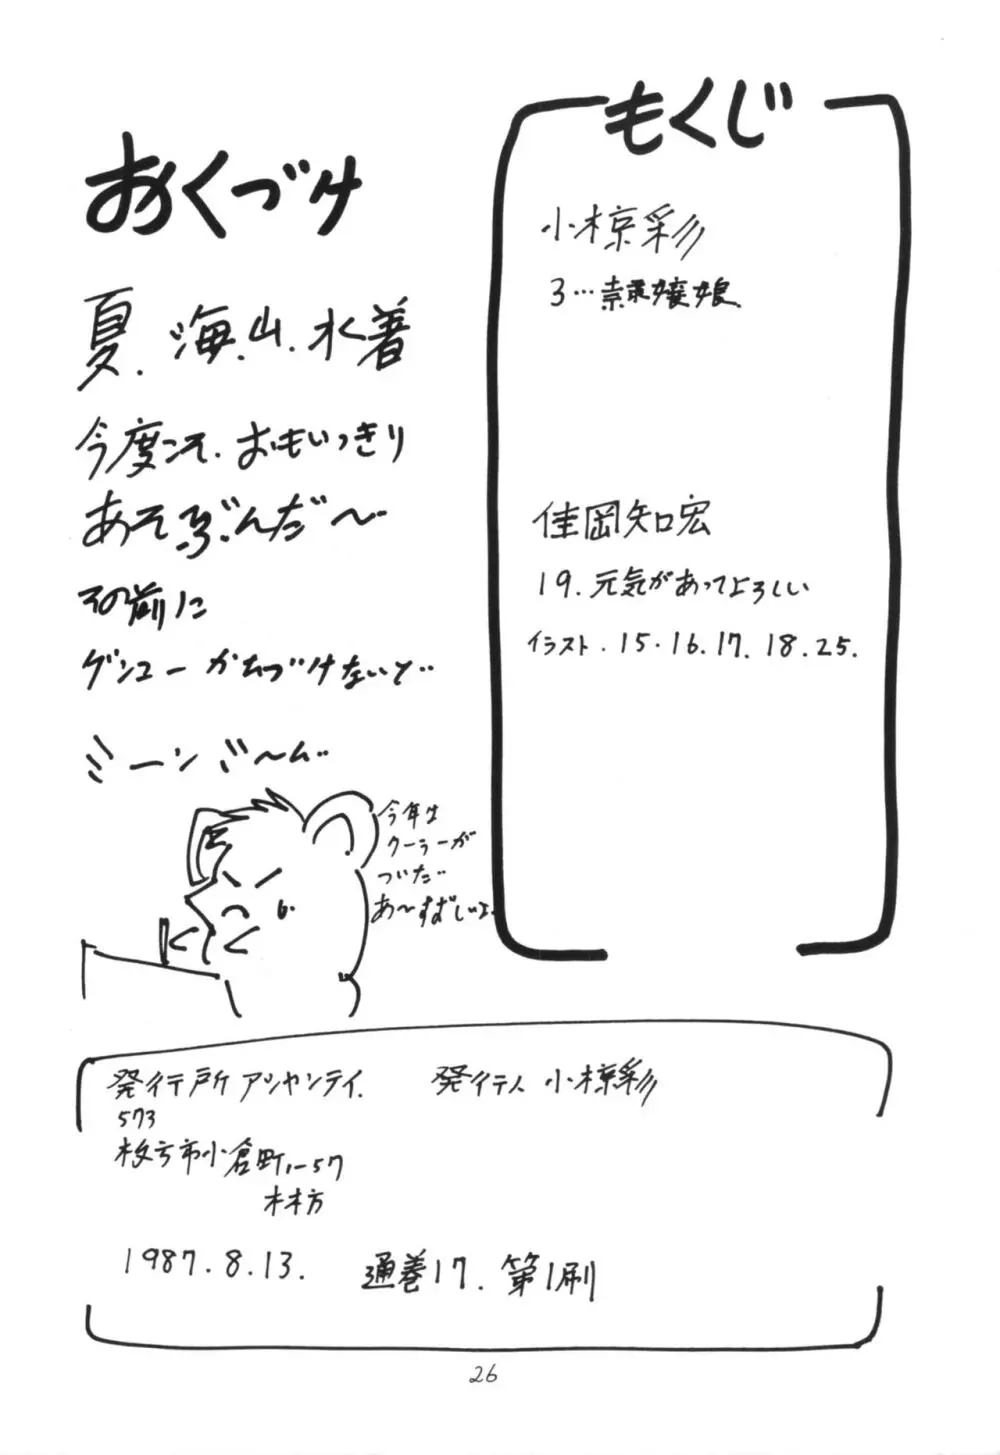 おくづけ
夏.海.山.水着
今度こそ.おもいっきり
あそぶんだ〜
その前に
ゲンコーかたづけないと‥
ミーンミ〜ム‥
今年は
クーラーが
ついた‥
あ〜すずしいよ.
もくじ
小椋彩
3…嬢娘
佳岡知宏
19.元気があってよろしい
イラスト.15.16.17.18.25.
発行所アシャンテイ.
発行人 小椋彩
573
枚方市小倉町1-57
林方
1987.8.13.
通巻17.第1刷
26